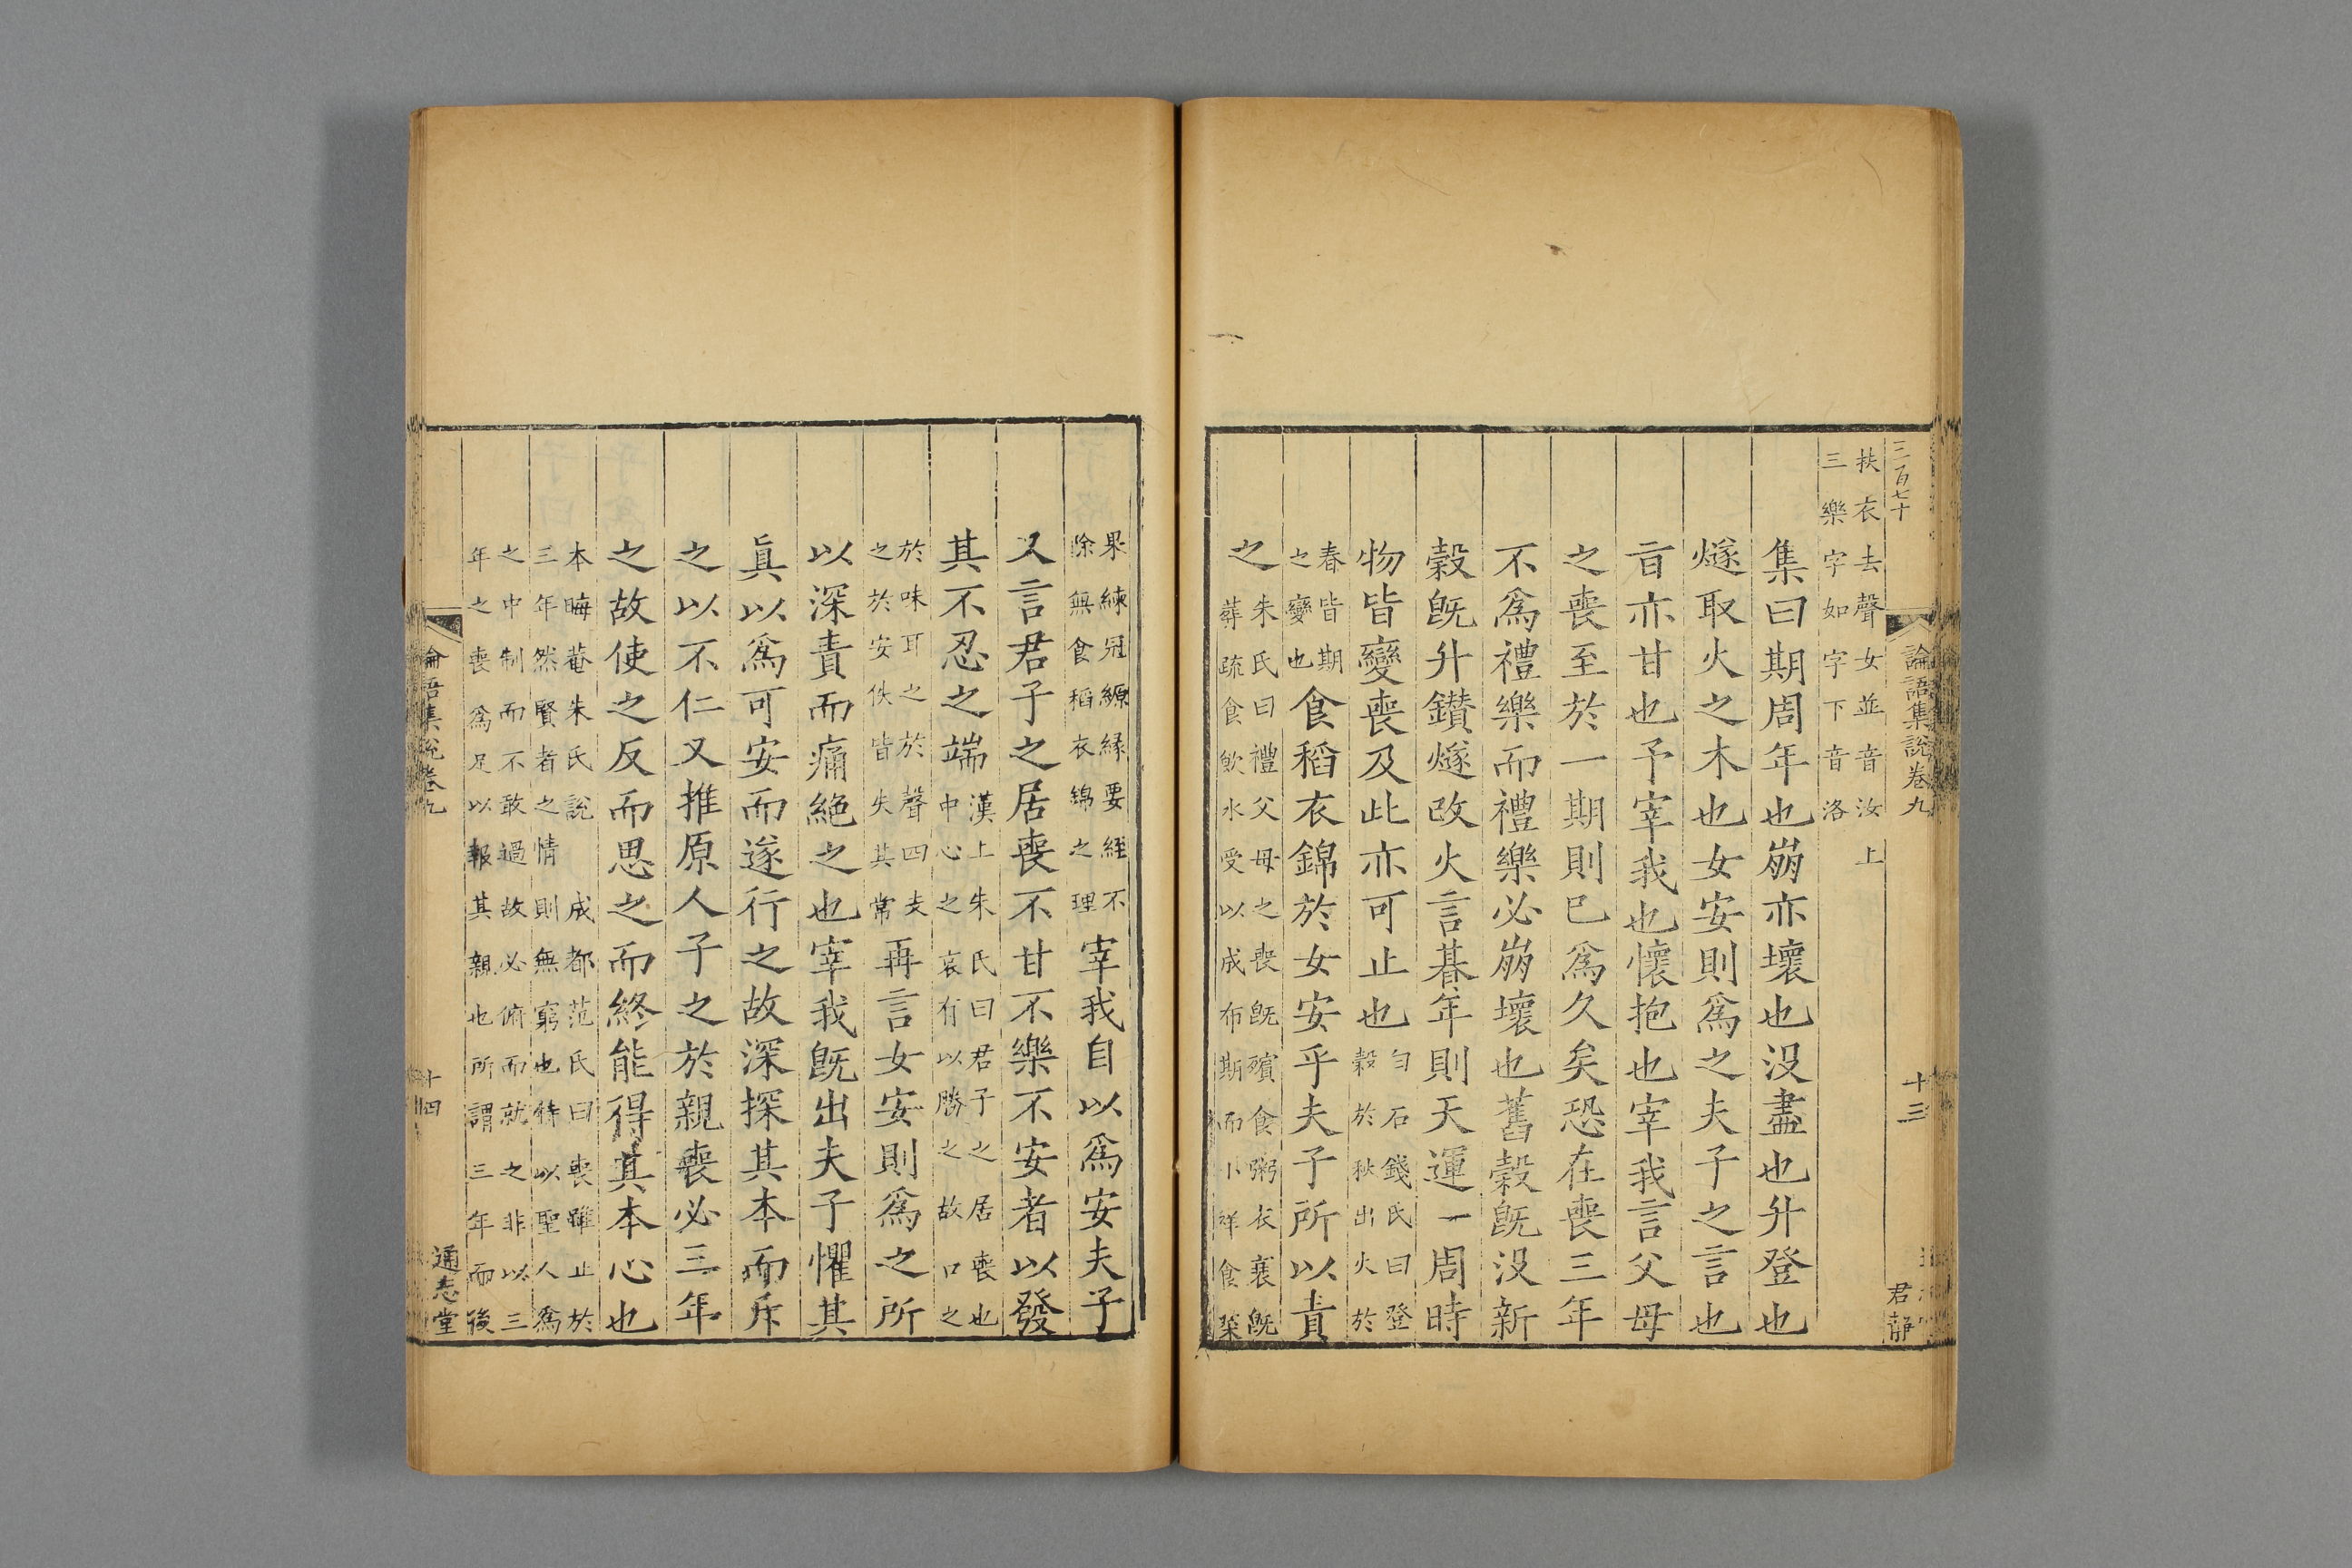 三百七十
論語集說卷九
十三
君靜
扶衣去聲女並音汝上
三樂字如字下音洛
集曰期周年也崩亦壞也没盡也升登也
燧取火之木也女安則爲之夫子之言也
㫖亦甘也予宰我也懷抱也宰我言父母
之喪至於一期則已爲久矣恐在喪三年
不爲禮樂而禮樂必崩壞也舊穀旣没新
穀旣升鑚燧改火言朞年則天運一周時
物皆變喪及此亦可止也
勻石錢氏曰登
穀於秋出火於
春皆期
之變也
食稻衣錦於女安乎夫子所以責
之
朱氏曰禮父母之喪旣殯食粥衣衰旣
葬疏食飲水受以成布斯而小祥食菜
果練冠縓緣要絰不
除無食稻衣錦之理
宰我自以爲安夫子
又言君子之居喪不甘不樂不安者以發
其不忍之端
漢上朱氏曰君子之居喪也
中心之哀有以勝之故口之
於味耳之於聲四支
之於安佚皆失其常
再言女安則爲之所
以深責而痛絕之也宰我旣出夫子懼其
眞以爲可安而遂行之故深探其本而斥
之以不仁又推原人子之於親喪必三年
之故使之反而思之而終能得其本心也
本晦菴朱氏說 成都范氏曰喪雖止於
三年然賢者之情則無窮也特以聖人爲
之中制而不敢過故必俯而就之非以三
年之喪爲足以報其親也所謂三年而後
論語集說卷九
十四
通志堂